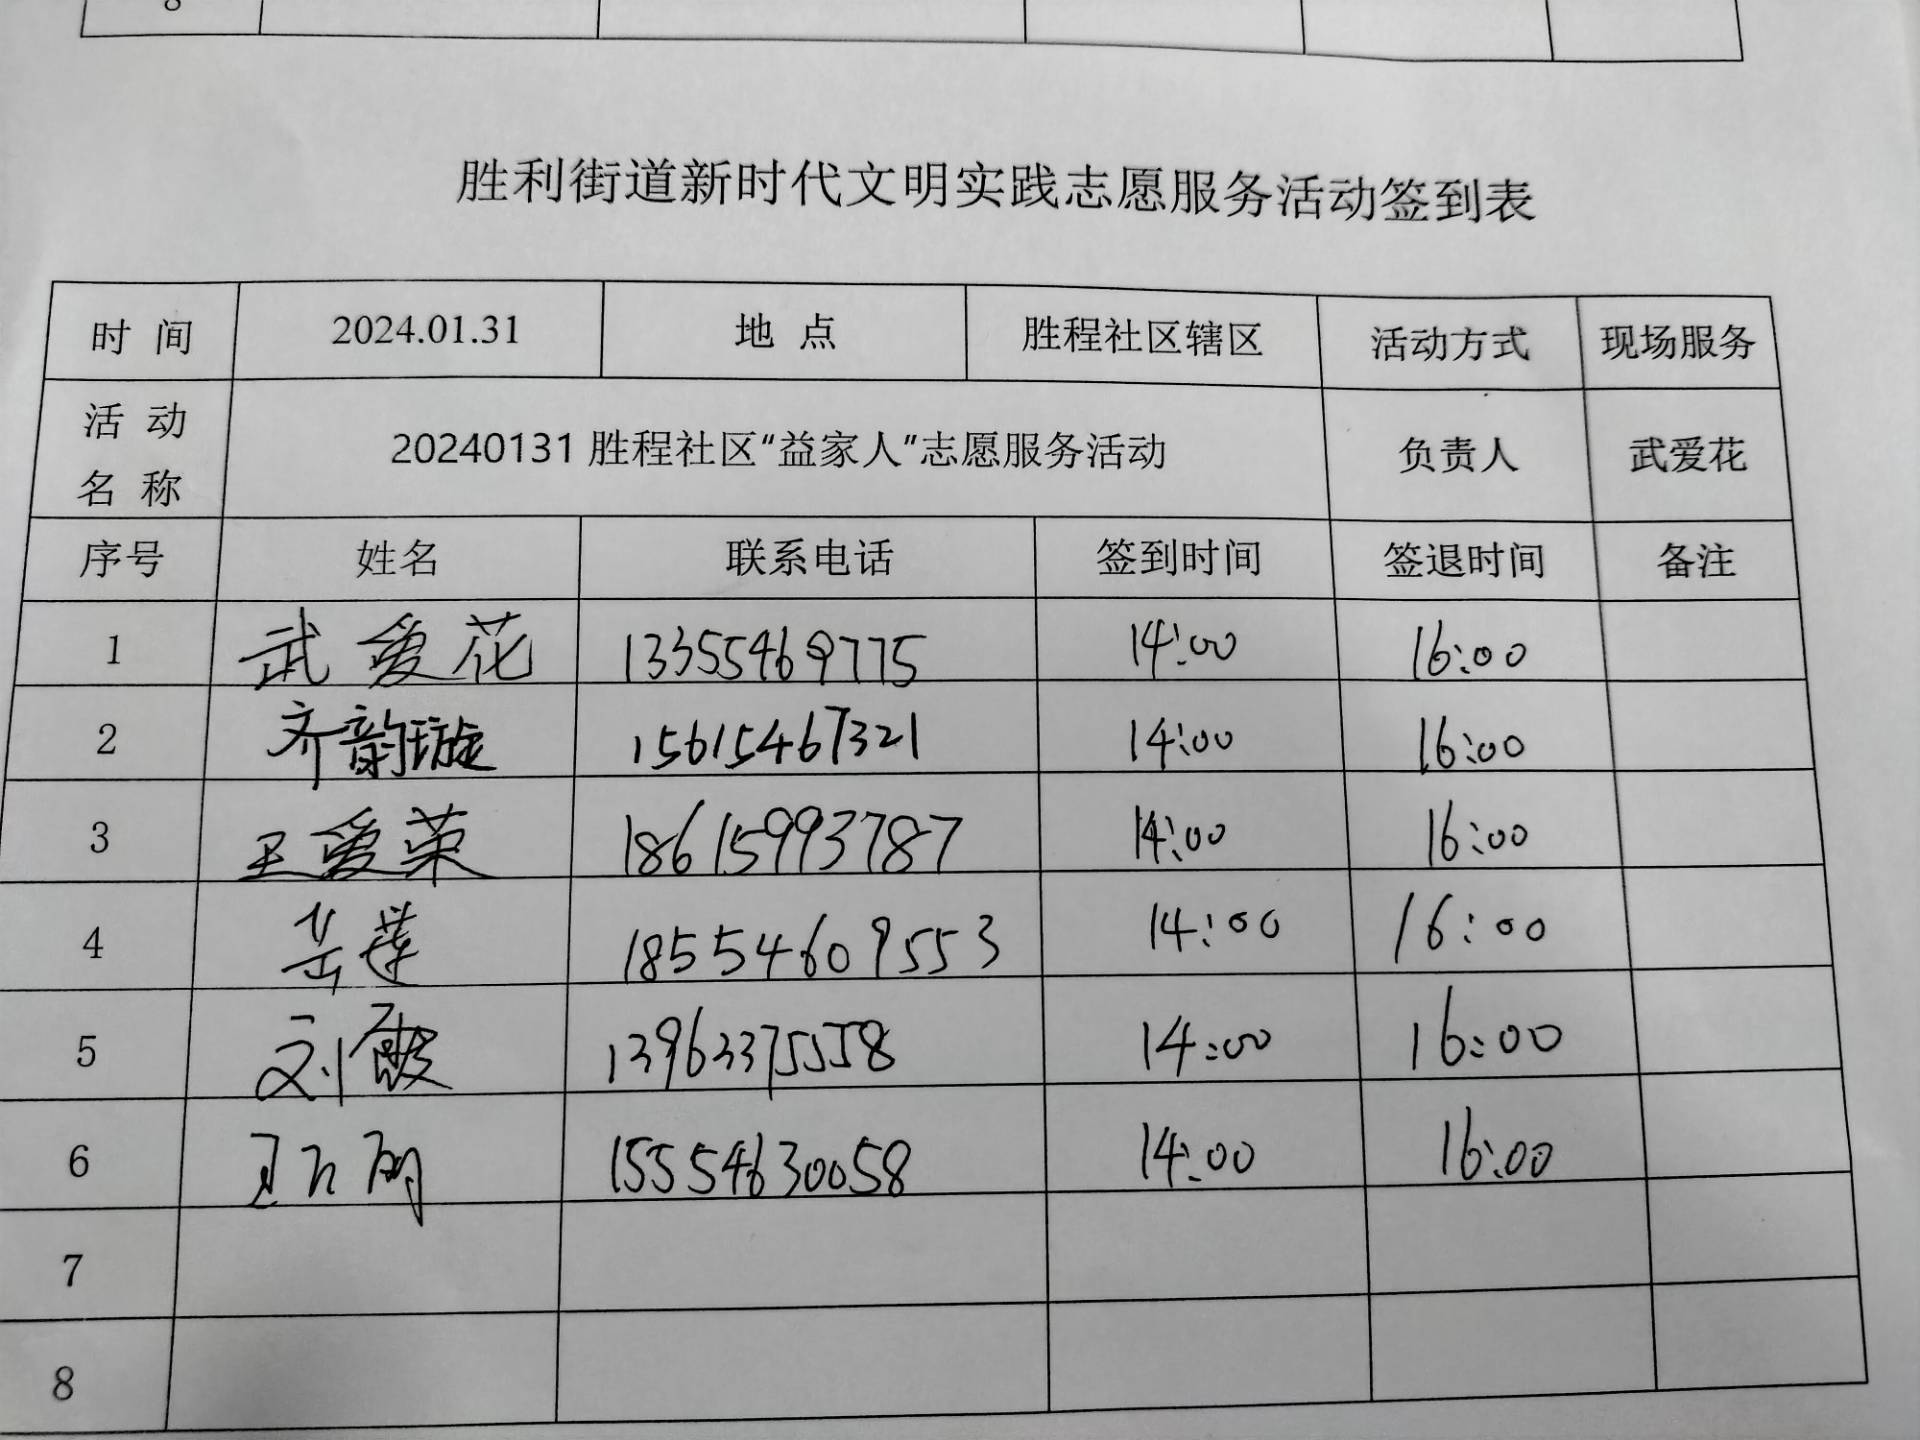 8
胜利街道新时代文明实践志愿服务活动签到表
时 间 2024.01.31 地 点 胜程社区辖区 活动方式 现场服务
活 动
名 称 20240131 胜程社区“益家人”志愿服务活动 负责人 武爱花
序号 姓名 联系电话 签到时间 签退时间 备注
1 武爱花 13355469775 14:00 16:00
2 齐韵璇 15615467321 14:00 16:00
3 王爱荣 18615993787 14:00 16:00
4 岳莲 18554609553 14:00 16:00
5 刘霞 13963375558 14:00 16:00
6 15554630058 14:00 16:00
7
8